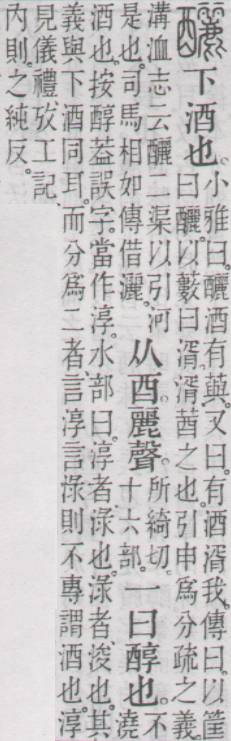 釃下酒也。小雅曰。釃酒有藇。又曰。有酒湑我。傳曰。以筐曰釃。以藪曰湑。湑茜之也。引申爲分疏之義。
溝洫志云釃二渠以引河是也。司馬相如傳借灑。从酉麗聲。所綺切。十六部。一曰醇也。不澆
酒也。按醇葢誤字。當作淳。水部曰。淳者、淥也。淥者、浚也。其義與下酒同耳。而分爲二者、言淳言淥則不專謂酒也。淳
見儀禮、攷工記、內則。之純反。